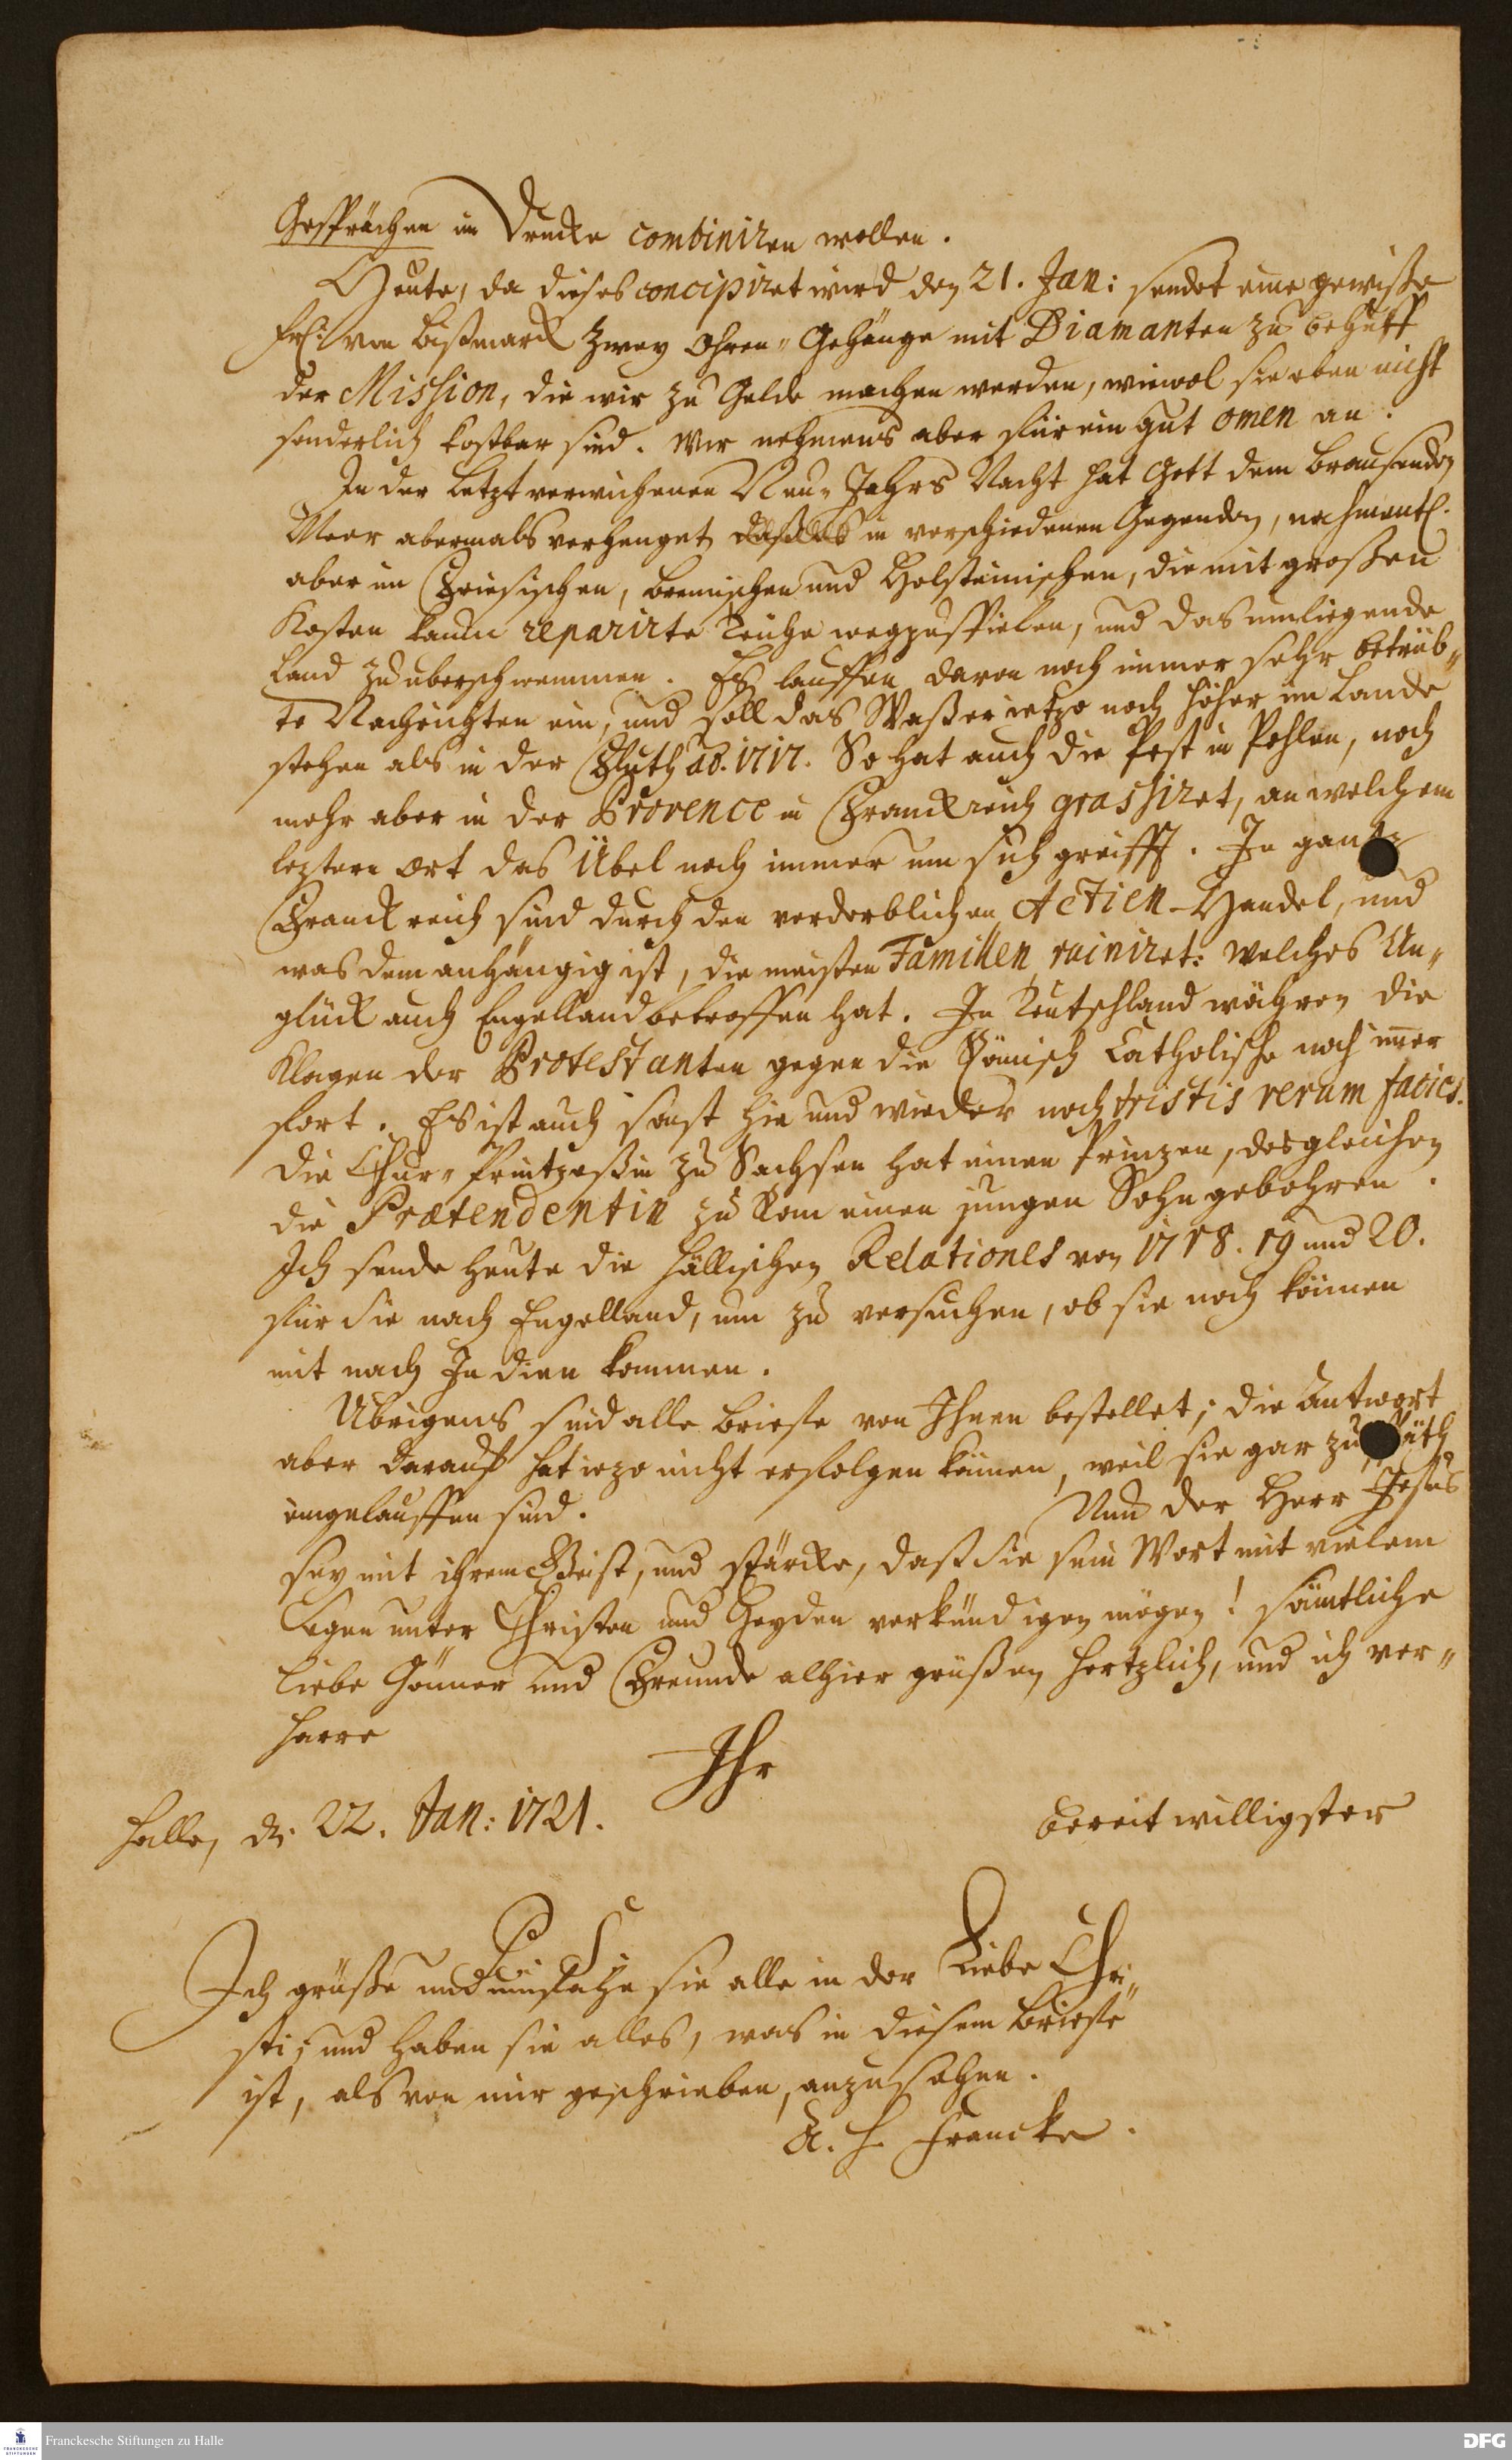 Gesprächen im Drucke combiniren wollen.
Heute, da dieses concipiret wird den 21. Jan: sendet eine gewiße
Frl: von Bißmarck zwey Ohren-Gehänge mit Diamanten zu behuff
der Mission, die wir zu Gelde machen werden, wiewol sie eben nicht
sonderlich kostbar sind. Wir nehmens aber für ein gut omen an.
In der letzt verwichenen Neu-Jahrs Nacht hat Gott dem brausenden
Meer abermals verhenget in verschiedenen Gegenden, nahmentl.
aber im Friesischen, Bremischen und Holsteinischen, die mit großen
Kosten kaum reparirte Teiche wegzuspielen, und das umliegende
Land zu überschwemmen. Es lauffen davon noch immer sehr betrüb-
te Nachrichten ein, und soll das Waßer ietzo noch höher im Lande
stehen als in der Fluth ao. 1717. So hat auch die Pest in Pohlen, noch
mehr aber in der Provence in Franckreich grassiret, an welchem
leztern Ort das Übel noch immer um sich greifft. In gantz
Franckreich sind durch den verderblichen Actien-Handel, und
was dem anhängig ist, die meisten Familien ruiniret: welches Un-
glück auch Engelland betroffen hat. In Teutschland währen die
Klagen der Protestanten gegen die Römisch Catholische noch imer
fort. Es ist auch sonst hie und wieder noch tristis rerum facies.
Die Chur-Printzeßin zu Sachsen hat einen Prinzen, desgleichen
die Prætendentin zu Rom einen jungen Sohn gebohren.
Ich sende heute die Hällischen Relationes von 1718. 19 und 20.
für Sie nach Engelland, um zu versuchen, ob sie noch können
mit nach Indien kommen.
Übrigens sind alle Briefe von Ihnen bestellet; die Antwort
aber darauf hat iezo nicht erfolgen können, weil sie gar zu späth
eingelauffen sind. Nun der Herr Jesus
sey mit ihrem Geist, und stärcke, daß Sie sein Wort mit vielem
Segen unter Christen und Heyden verkündigen mögen! Sämtliche
liebe Gönner und Freunde alhier grüßen hertzlich, und ich ver-
harre
Ihr
Halle, d. 22. Jan: 1721.
bereitwilligster
P. S.
Ich grüße und umfahe sie alle in der Liebe Chri-
sti; und haben sie alles, was in diesem Briefe
ist, als von mir geschrieben, anzusehen.
A. H. Francke.
Franckesche Stiftungen zu Halle
FRANCKESCHE STIFTUNGEN
DFG